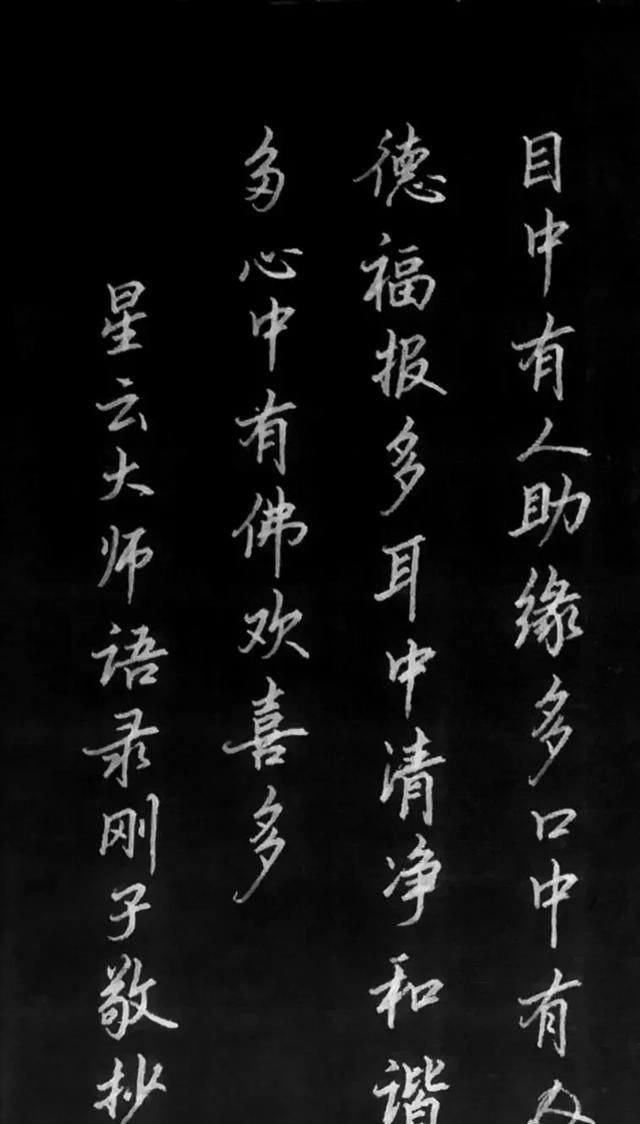 目中有人助缘多口中有
德福报多耳中清净和谐
多心中有佛欢喜多
星云大师语录刚子敬抄